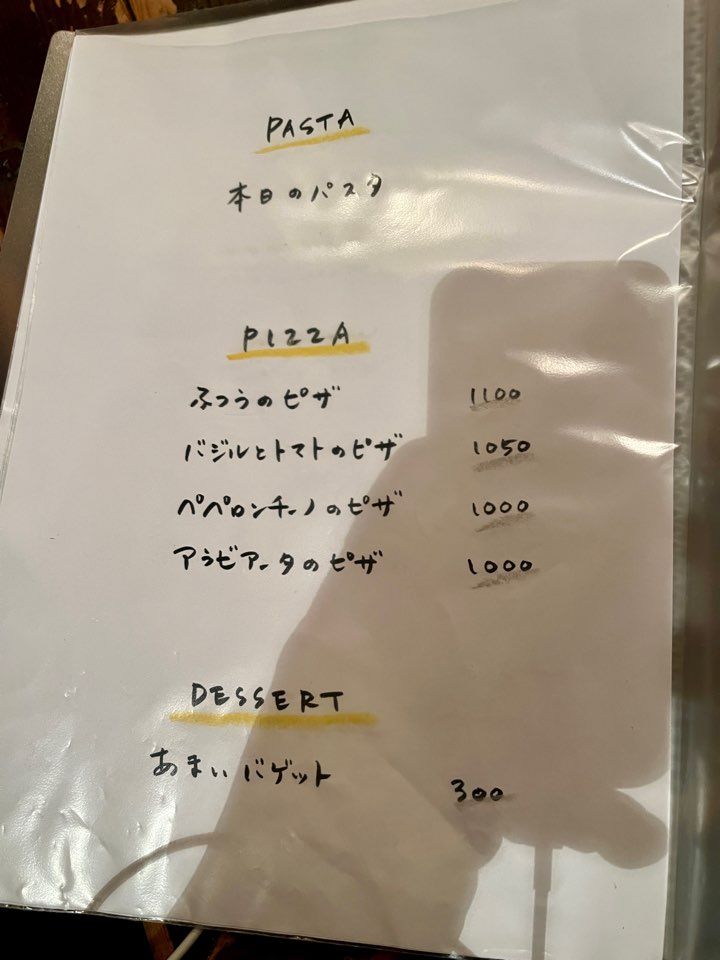 PASTA
本日のパスタ
PIZZA
ふつうのピザ 1100
バジルとトマトのピザ 1050
ペペロンチーノのピザ 1000
アラビアータのピザ 1000
DESSERT
あまいバゲット 300